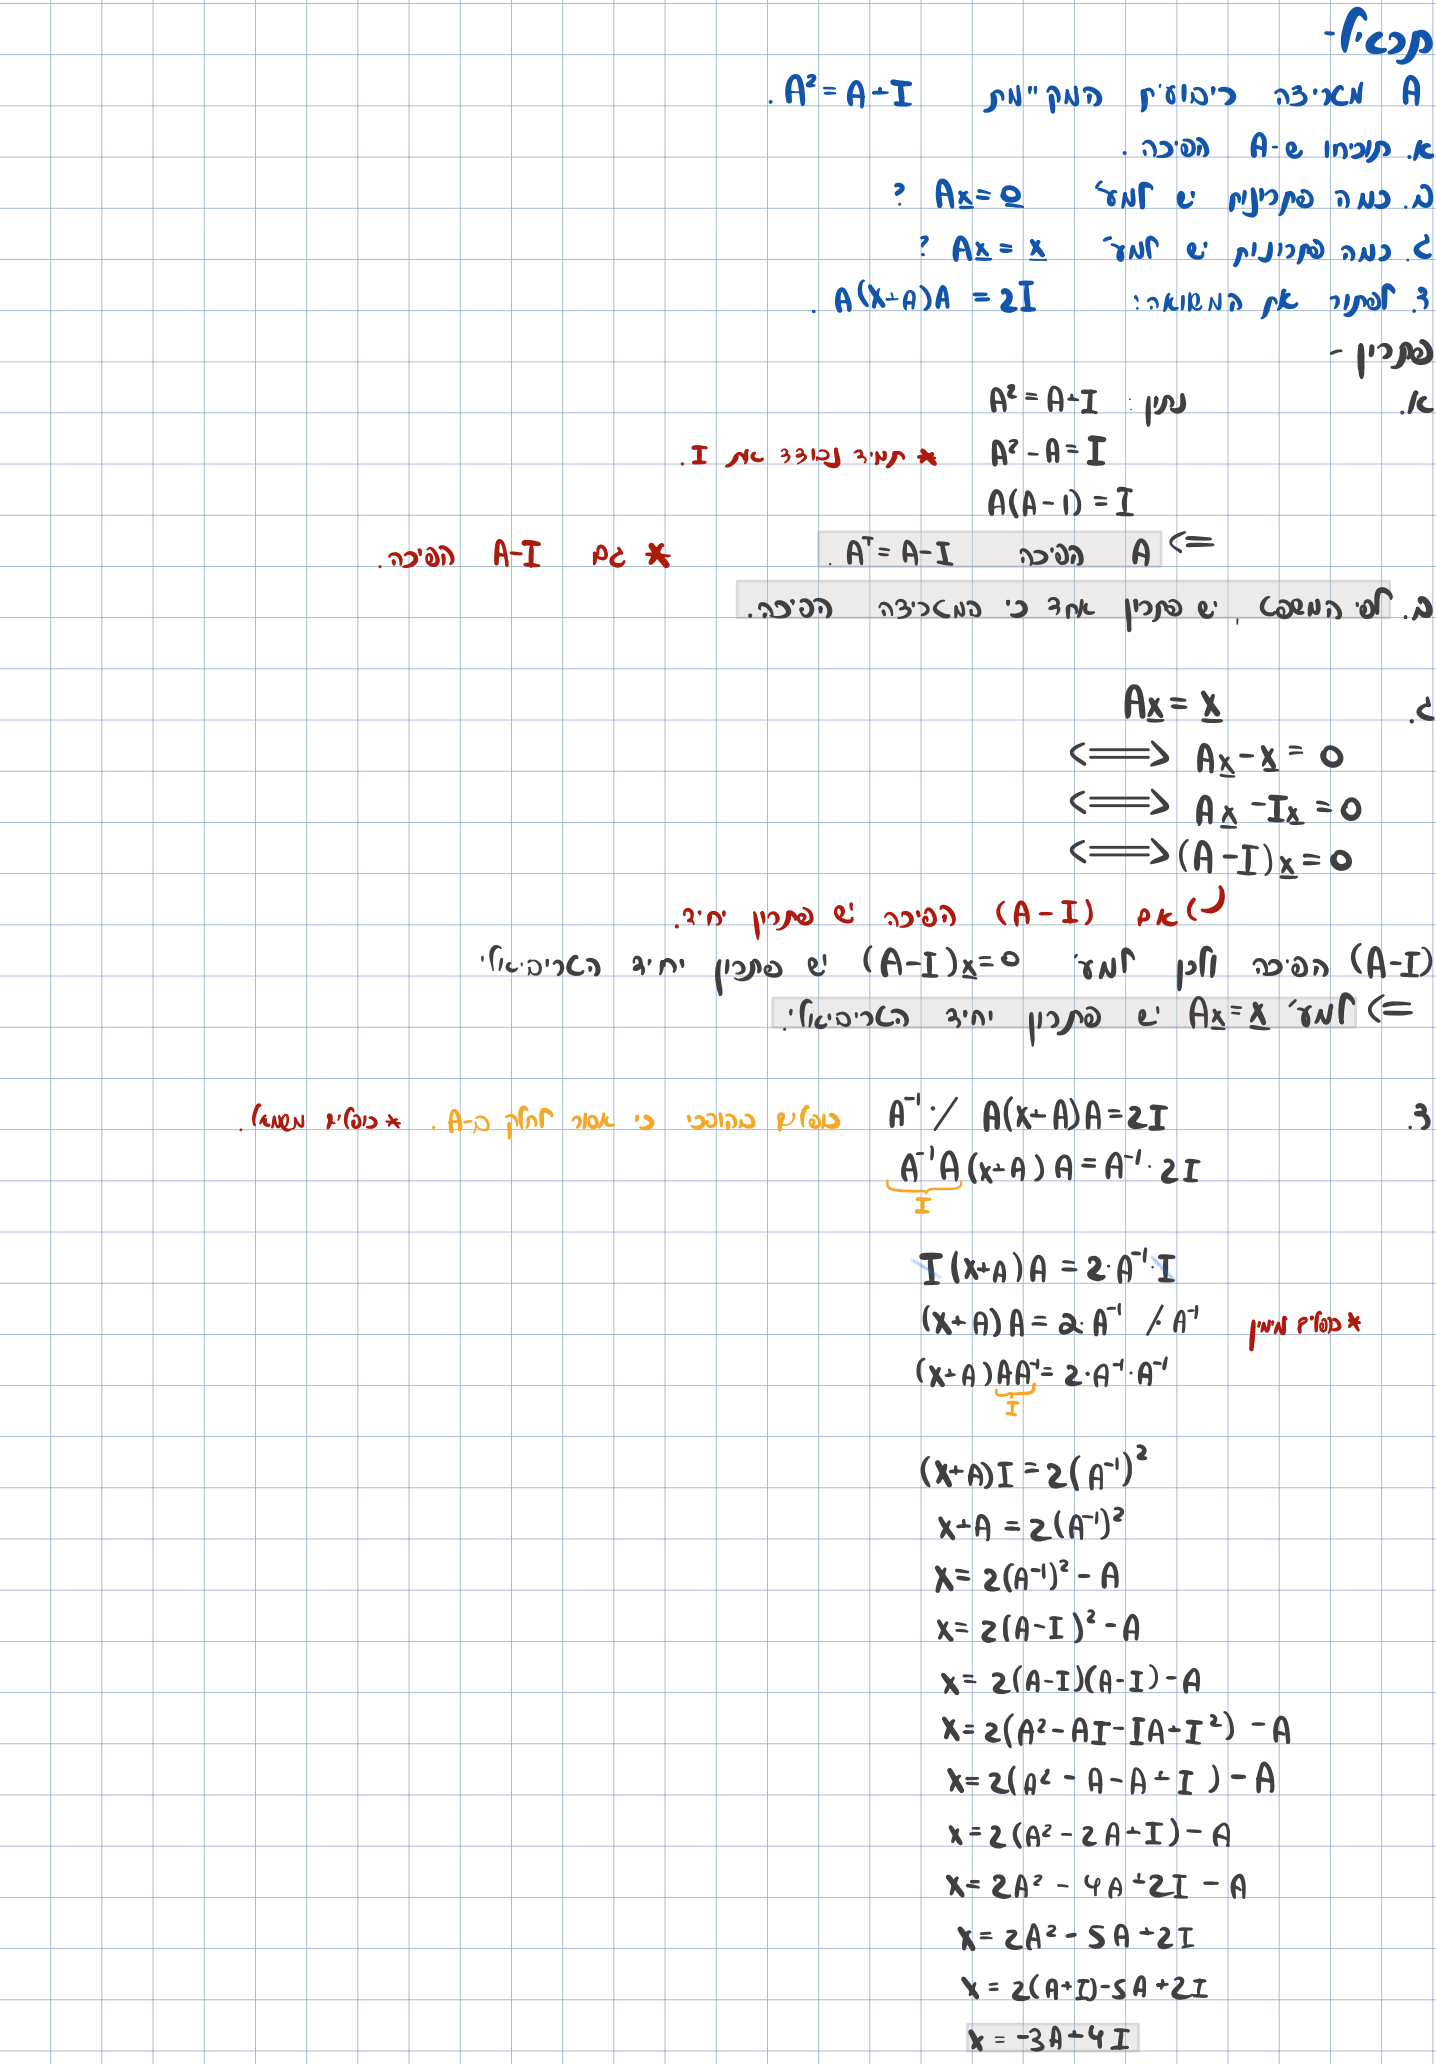 תרגיל-
A מטריצה ריבועית המקיימת A² = A+I .
א. תוכיחו ש-A הפיכה .
ב. כמה פתרונות יש למע' Ax = 0 ?
ג. כמה פתרונות יש למע' Ax = x ?
ד. לפתור את המשוואה: A(X+A)A = 2I .
פתרון -
א. נתון: A² = A+I
A² - A = I * תמיד נבודד את I.
A(A-1) = I
<= A הפיכה A⁻¹ = A-I . * גם A-I הפיכה.
ב. לפי המשפט, יש פתרון אחד כי המטריצה הפיכה.
ג. Ax = x
<=> Ax - x = 0
<=> Ax - Ix = 0
<=> (A-I)x = 0
אם (A-I) הפיכה יש פתרון יחיד.
(A-I) הפיכה ולכן למע' (A-I)x=0 יש פתרון יחיד הטריביאלי
<= למע' Ax=x יש פתרון יחיד הטריביאלי.
ד. A⁻¹ ·/ A(x+A)A = 2I כופלים בהופכי כי אסור לחלק ב-A . * כופלים משמאל.
A⁻¹A(x+A)A = A⁻¹·2I
I
I(x+A)A = 2·A⁻¹·I
(x+A)A = 2·A⁻¹ /·A⁻¹ * כופלים מימין
(x+A)AA⁻¹ = 2·A⁻¹·A⁻¹
I
(x+A)I = 2(A⁻¹)²
x+A = 2(A⁻¹)²
x = 2(A⁻¹)² - A
x = 2(A-I)² - A
x = 2(A-I)(A-I) - A
x = 2(A² - AI - IA + I²) - A
x = 2(A² - A - A + I) - A
x = 2(A² - 2A + I) - A
x = 2A² - 4A + 2I - A
x = 2A² - 5A + 2I
x = 2(A+I) - 5A + 2I
x = -3A + 4I